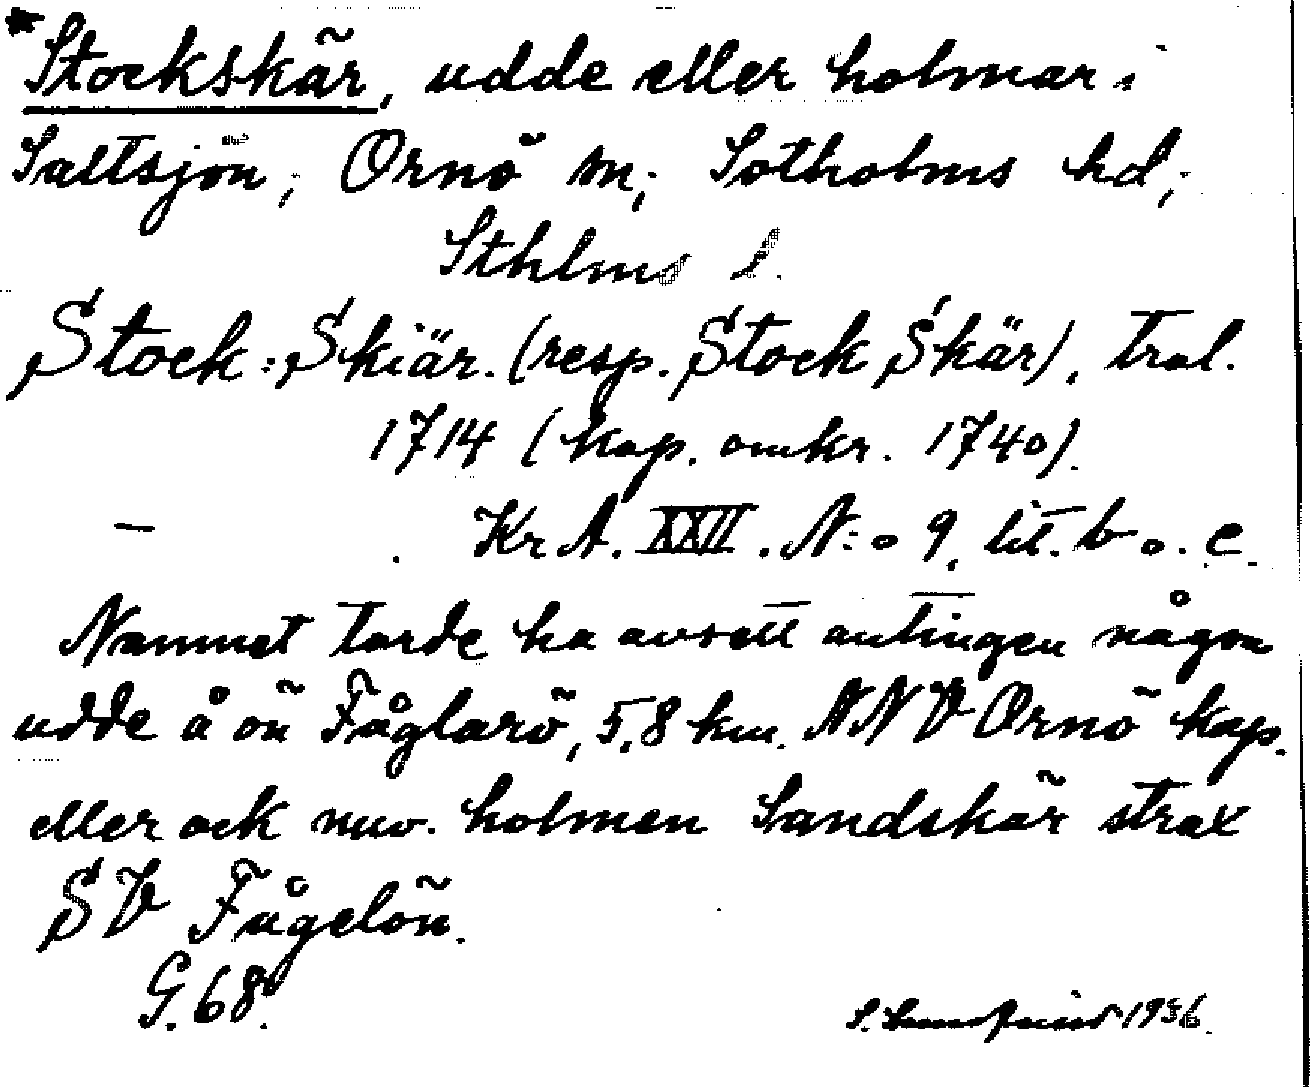 *Stockskär, udde eller holmar i
Saltsjön; Ornö sn; Sotholms hd;
Sthlms l.
Stock:Skiär. (resp. Stock Skär), Tral.
1714 (kop. omkr. 1740).
— . KrA. XXII. N:o 9, lit. b o. c.
Namnet torde ha avsett antingen någon
udde å ön Fåglarö, 5,8 km. NNV Ornö kap.
eller ock nuv. holmen Sandskär strax
SV Fågelön.
G. 68.
1936.